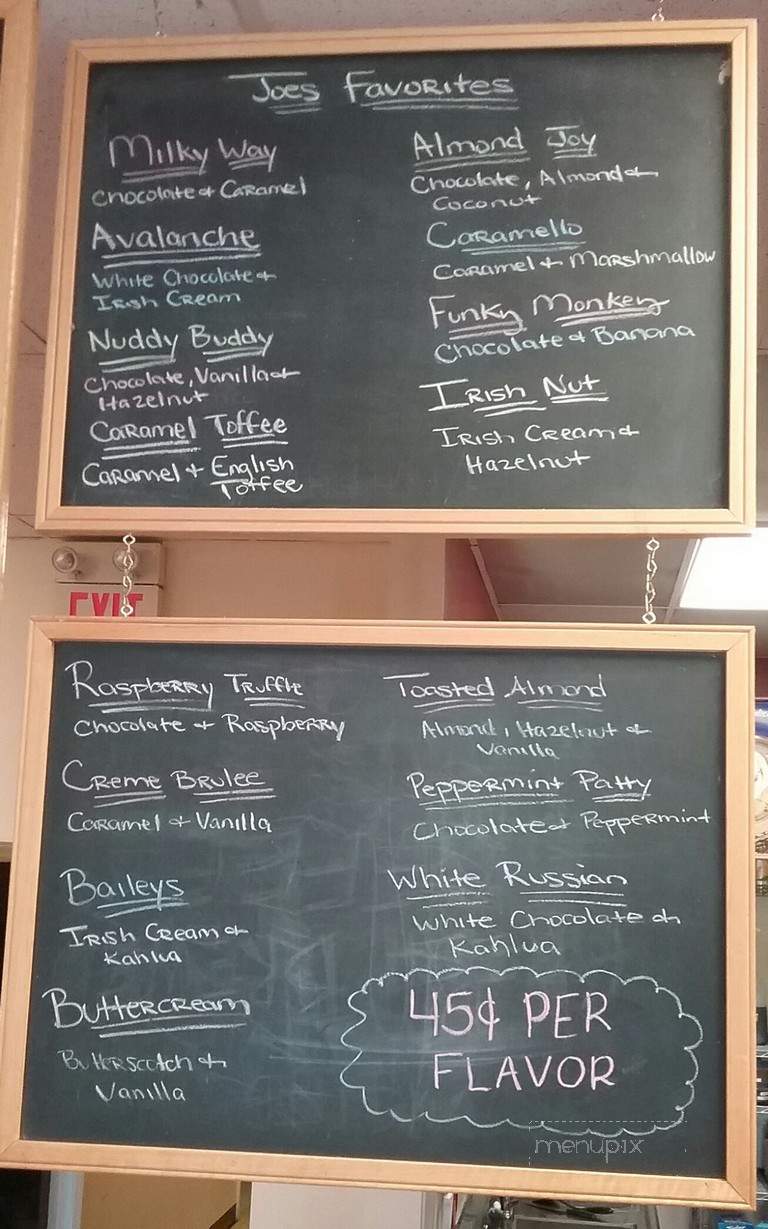 Joes Favorites
Milky Way
Chocolate & Caramel
Avalanche
White Chocolate &
Irish Cream
Nuddy Buddy
Chocolate, Vanilla &
Hazelnut
Caramel Toffee
Caramel & English
Toffee
Almond Joy
Chocolate, Almond &
Coconut
Caramello
Caramel & Marshmallow
Funky Monkey
Chocolate & Banana
Irish Nut
Irish Cream &
Hazelnut
EXIT
Raspberry Truffle
Chocolate & Raspberry
Creme Brulee
Caramel & Vanilla
Baileys
Irish Cream &
Kahlua
Buttercream
Butterscotch &
Vanilla
Toasted Almond
Almond, Hazelnut &
Vanilla
Peppermint Patty
Chocolate & Peppermint
White Russian
White Chocolate &
Kahlua
45¢ PER
FLAVOR
menupix